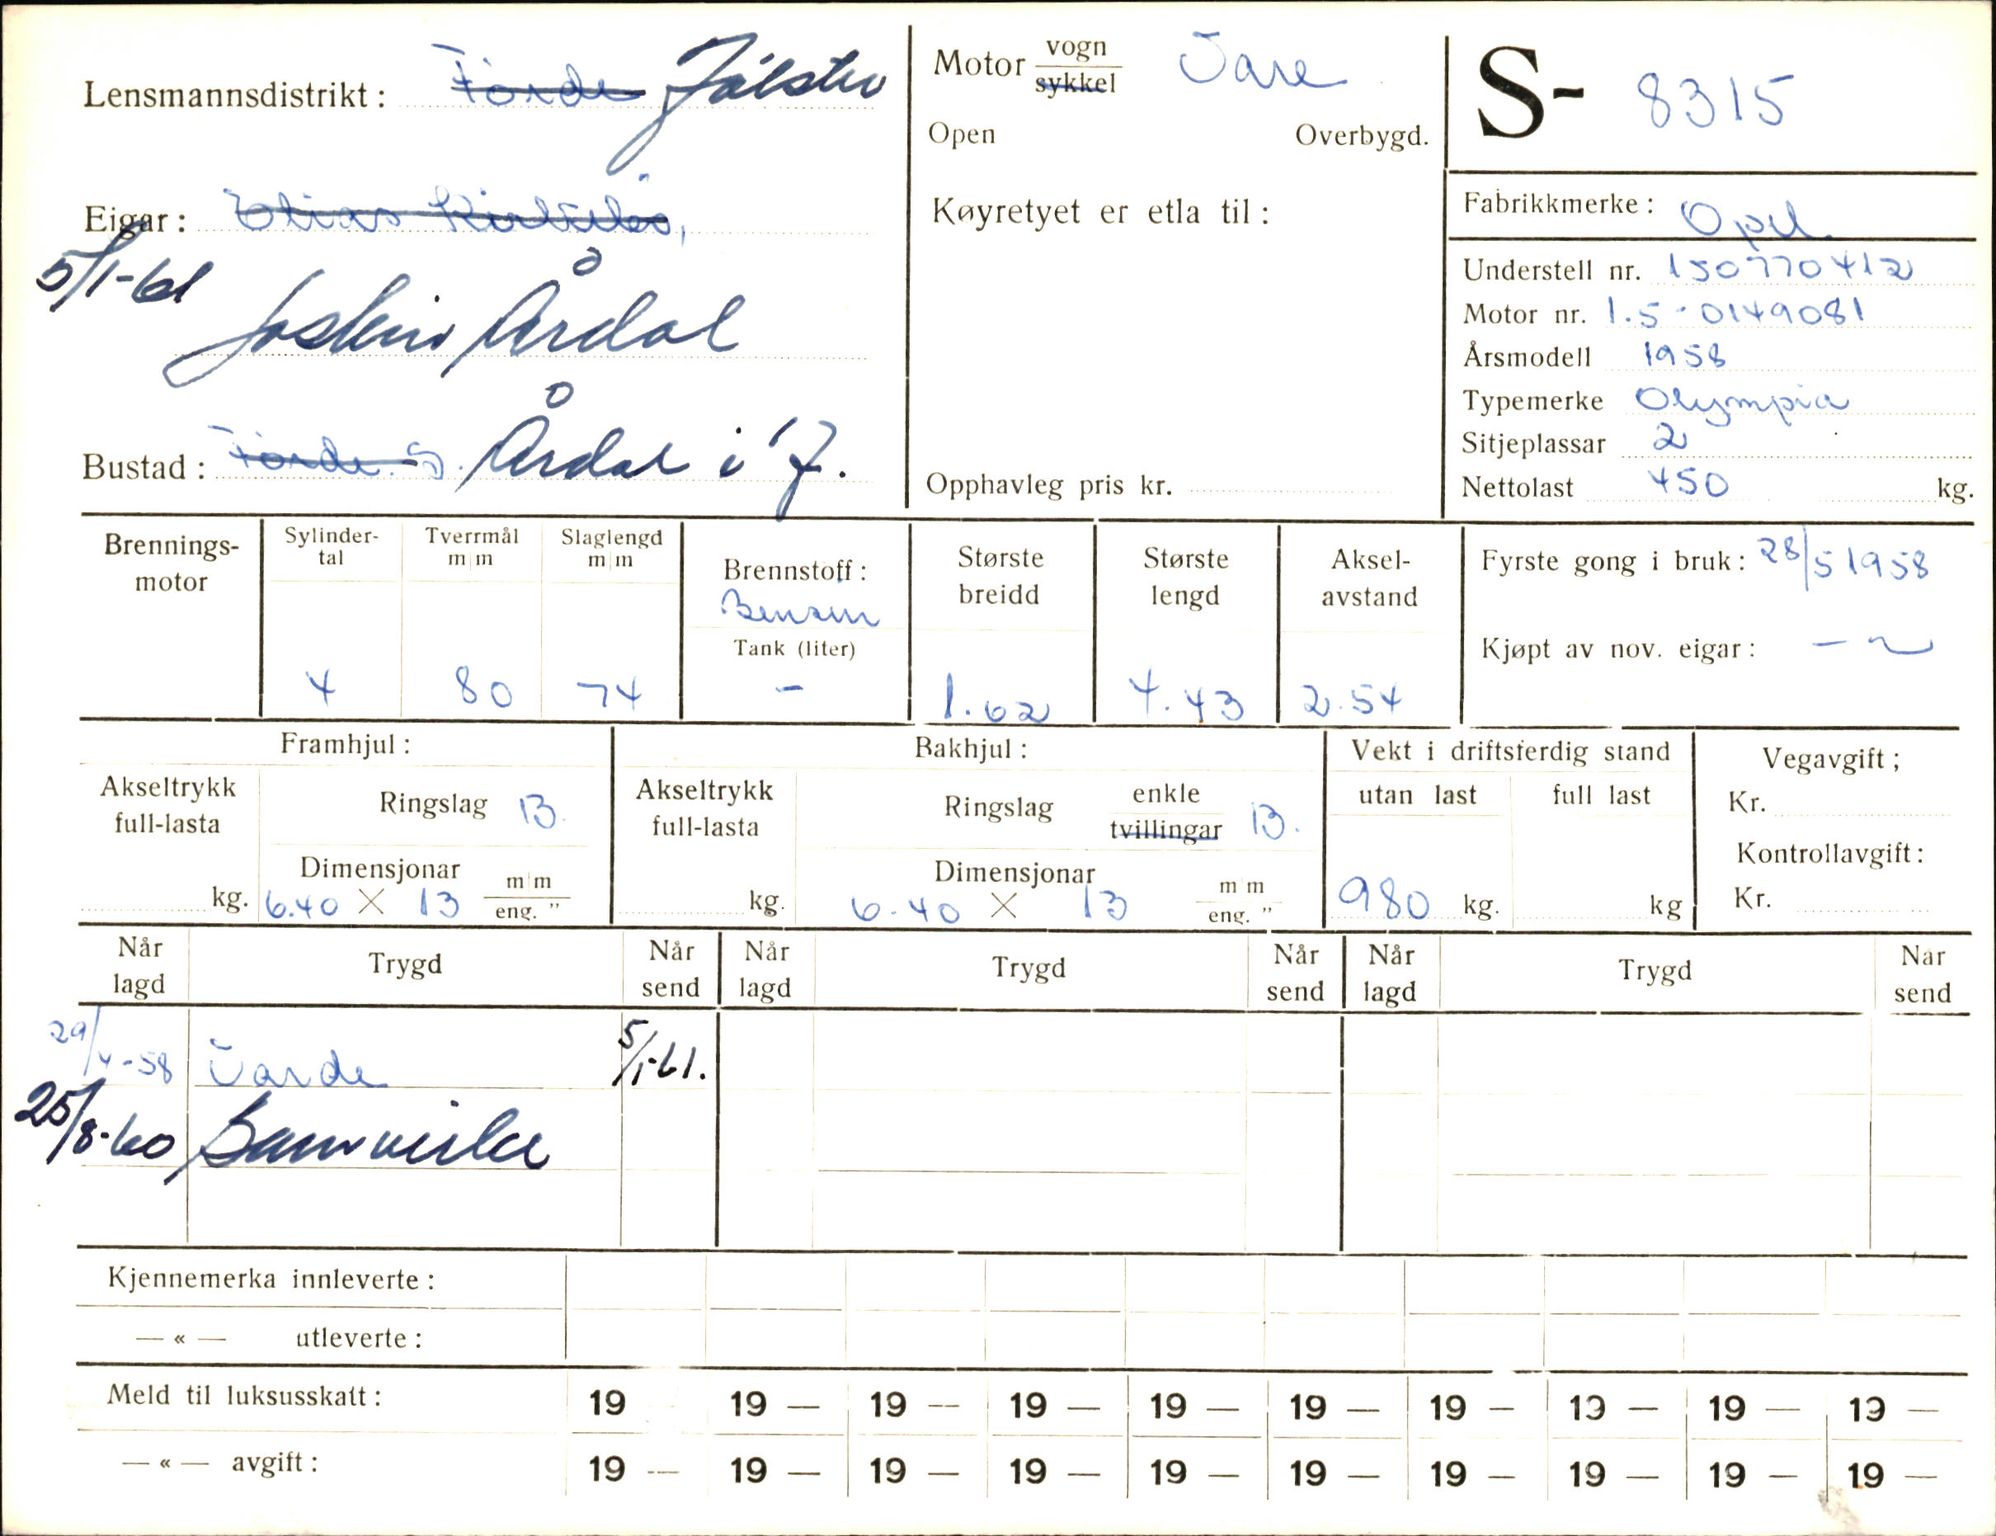 Lensmannsdistrikt: Førde Jølster
Motor vogn sykkel Vare
Open Overbygd.
S- 8315
Eigar: Elias
5/1-61
Jostein Årdal
Bustad: Førde S. Årdal i J.
Køyretyet er etla til:
Opphavleg pris kr.
Fabrikkmerke: Opel
Understell nr. 150770412
Motor nr. 1.5-0149081
Årsmodell 1958
Typemerke Olympia
Sitjeplassar 2
Nettolast 450 kg.
Brennings-
motor
Sylinder-
tal
4
Tverrmål
m|m
80
Slaglengd
m|m
74
Brennstoff:
Bensin
Tank (liter)
-
Største
breidd
1.62
Største
lengd
4.43
Aksel-
avstand
2.54
Fyrste gong i bruk: 28/5 1958
Kjøpt av nov. eigar: — ~
Framhjul:
Akseltrykk
full-lasta
kg.
Ringslag 13.
Dimensjonar
6.40 X 13 m|m eng. "
Bakhjul:
Akseltrykk
full-lasta
kg.
Ringslag enkle tvillingar 13.
Dimensjonar
6.40 X 13 m|m eng. "
Vekt i driftsferdig stand
utan last full last
980 kg. kg
Vegavgift;
Kr.
Kontrollavgift:
Kr.
Når
lagd
Trygd
Når
send
Når
lagd
Trygd
Når
send
Når
lagd
Trygd
Når
send
29/4-58 Varde 5/1-61.
25/8-60 Samvirke
Kjennemerka innleverte:
— « — utleverte:
Meld til luksusskatt: 19 19 — 19 — 19 — 19 — 19 — 19 — 19 — 19 — 19 —
— « — avgift: 19 — 19 — 19 — 19 — 19 — 19 — 19 — 19 — 19 — 19 —